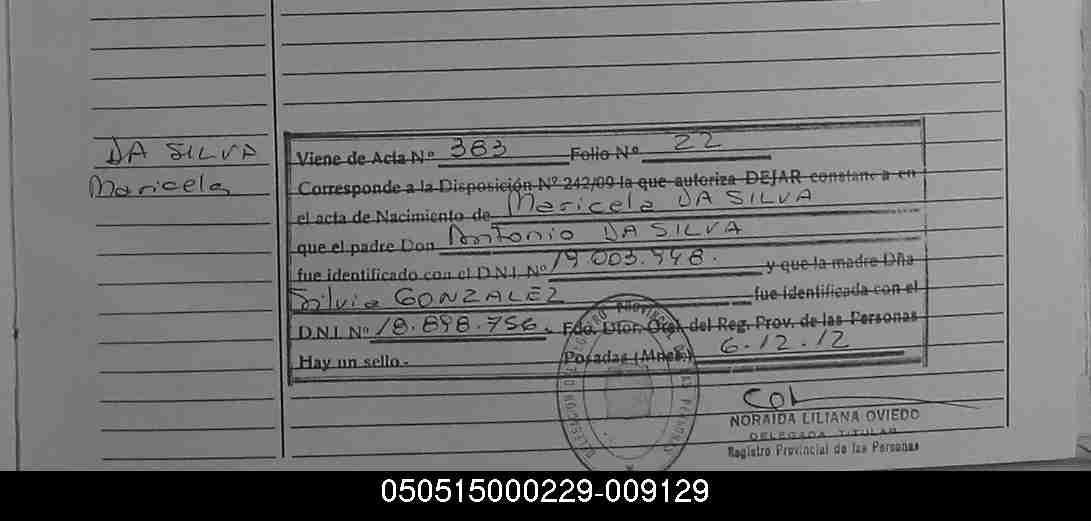 DA SILVA
Maricela
Viene de Acta Nº 383 Folio Nº 22
Corresponde a la Disposición Nº 242/09 la que autoriza DEJAR constancia en
el acta de Nacimiento de Maricela DA SILVA
que el padre Don Antonio DA SILVA
fue identificado con el D.N.I. Nº 19.003.948. y que la madre Dña
Silvia GONZALEZ fue identificada con el
D.N.I. Nº 18.898.756. Fdo. Dtor. Gral. del Reg. Prov. de las Personas
Hay un sello.- Posadas (Mnes.) 6.12.12
NORAIDA LILIANA OVIEDO
DELEGADA TITULAR
Registro Provincial de las Personas
050515000229-009129